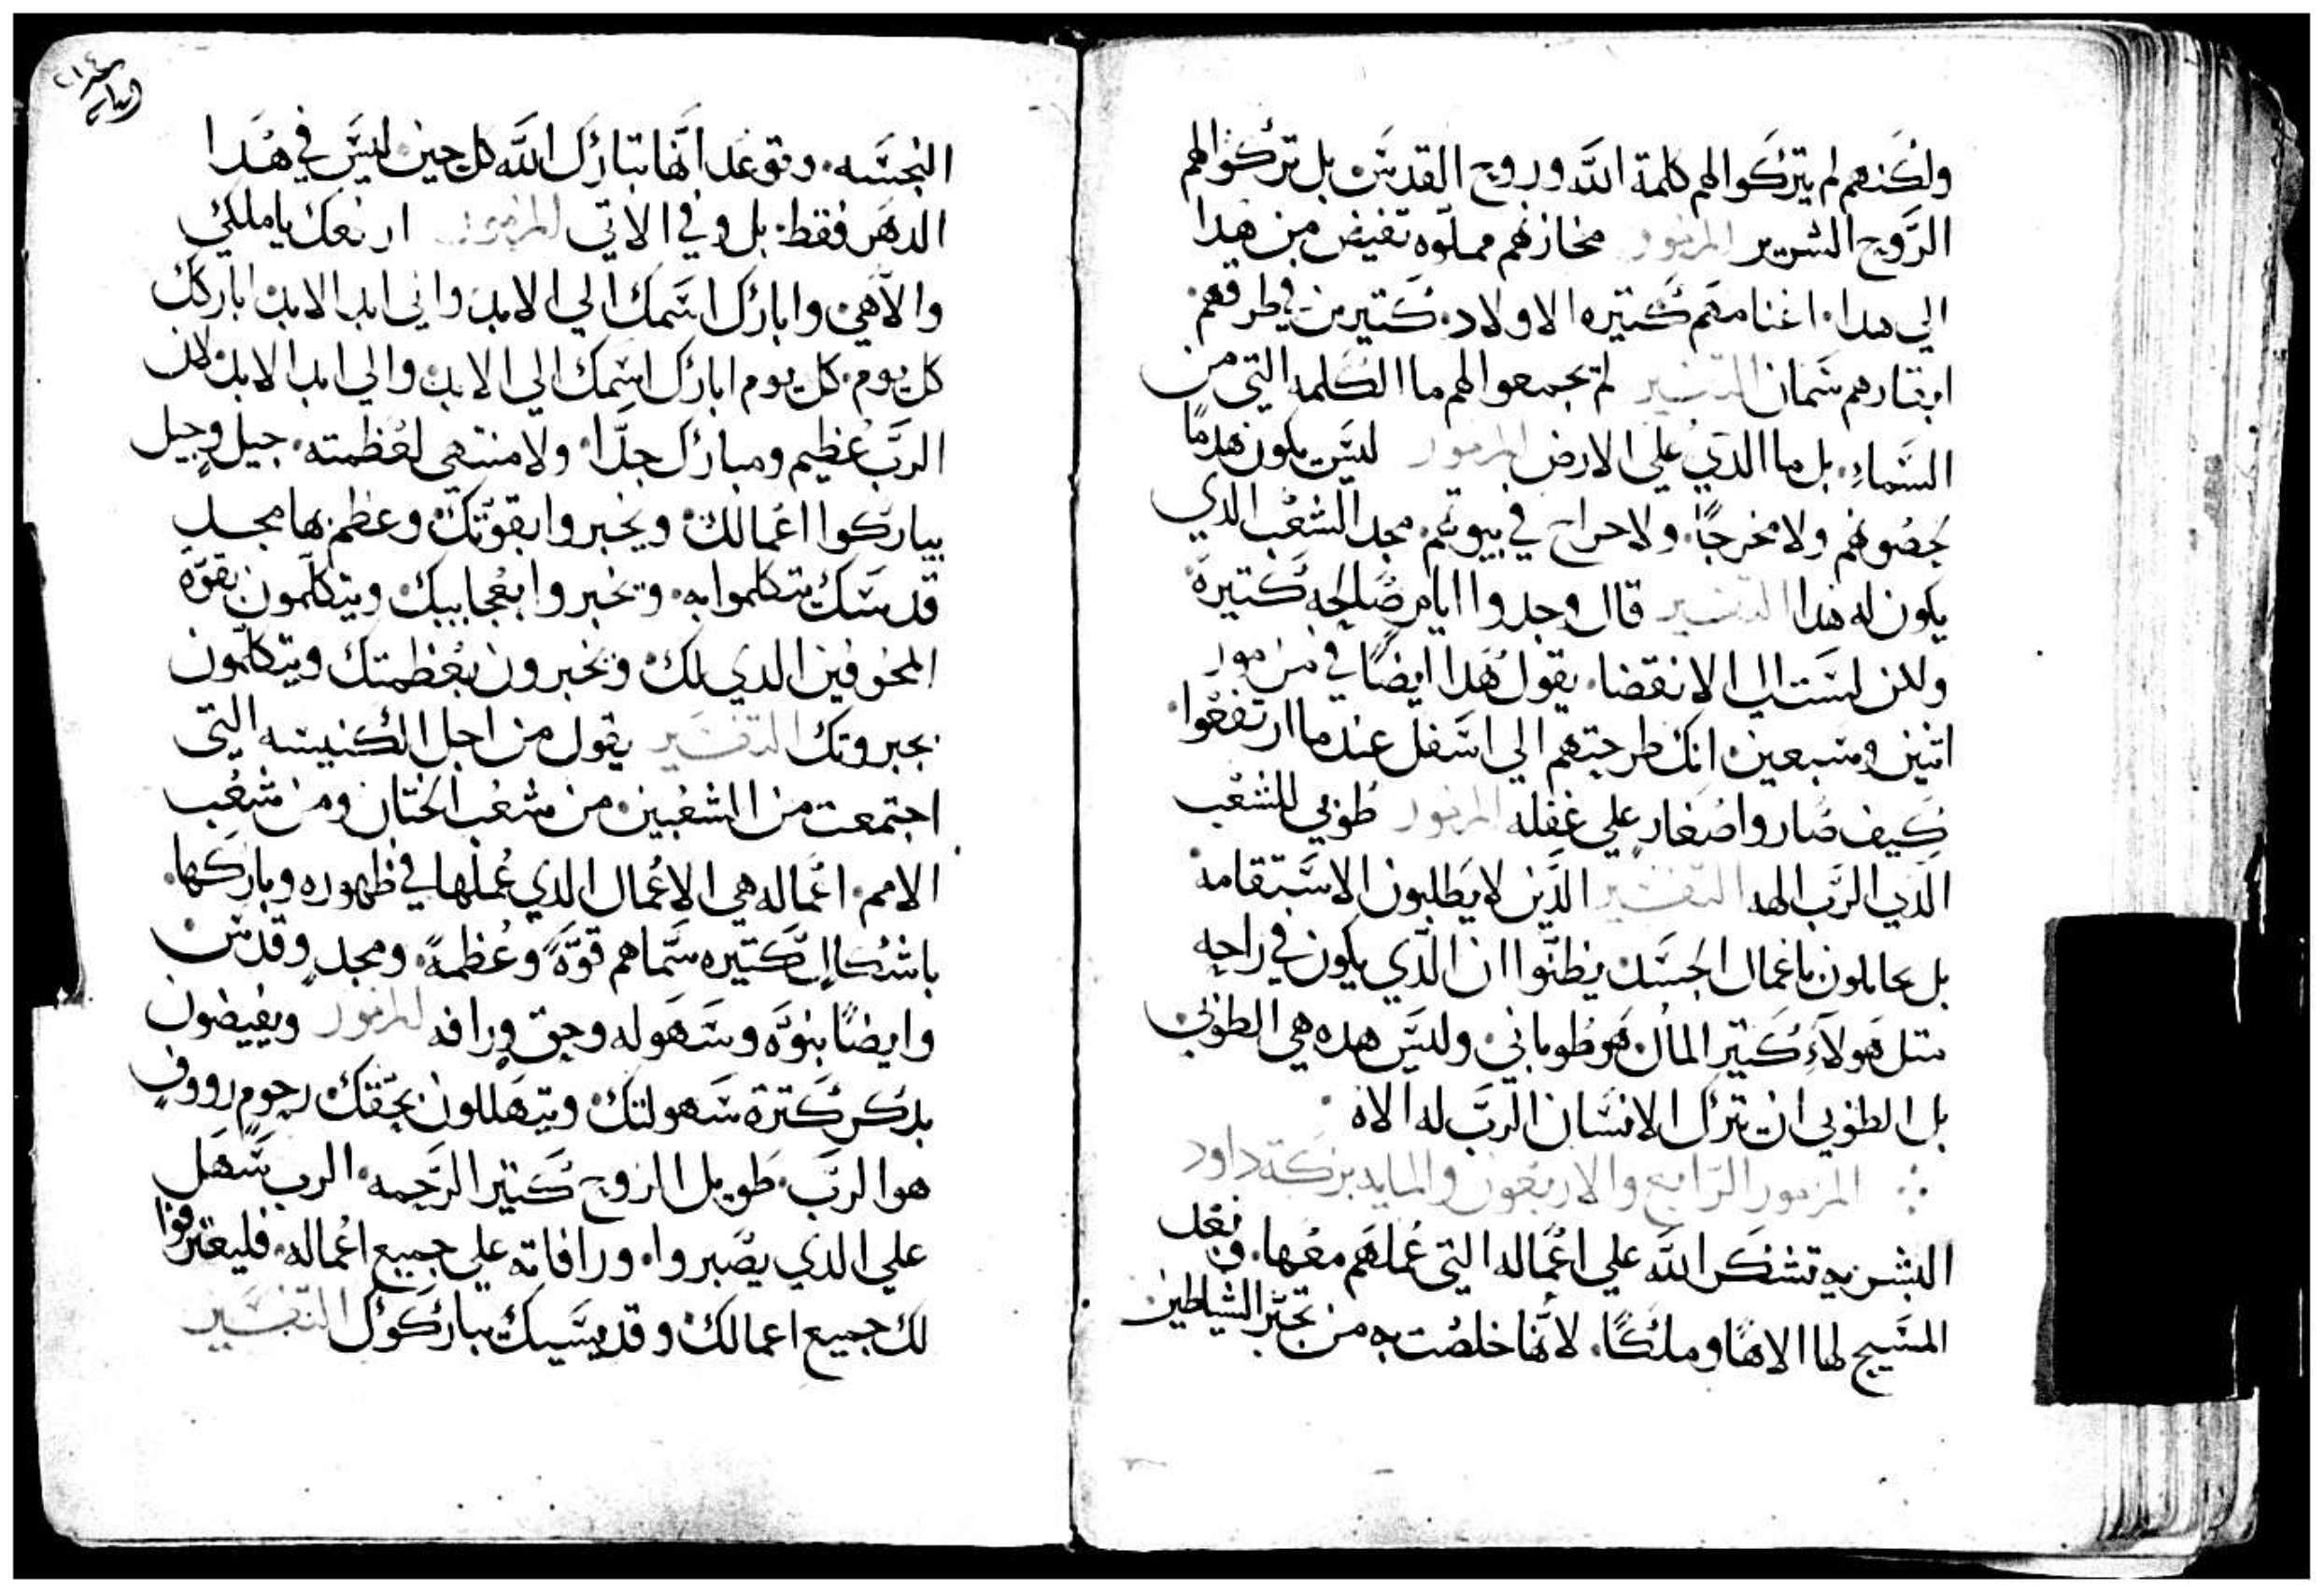 ولكنهم لم يتركوا لهم كلمة الله وروح القدس بل تركوا لهم
الروح الشرير المزمور مخازنهم مملوه تفيض من هدا
الي هدا. اغنامهم كتيره الاولاد. كتيرين في طرقهم.
ابقارهم سمان التفسير لم يجمعوا لهم ما الكلمه التي من
السماء. بل ما الدي علي الارض المزمور ليس يكون هدما
لحصونهم ولا مخرجا. ولا صراخ في بيوتهم. مجد الشعب الدي
يكون له هدا التفسير قال وجدوا ايام صالحه كتيرة
ولكن ليست الي الانقضا. يقول هدا ايضا في مزمور
اتنين وسبعين. انك طرحتهم الي اسفل عندما ارتفعوا.
كيف صاروا صغار علي غفله المزمور طوبي للشعب
الدي الرب الهه التفسير الدين لا يطلبون الاستقامه
بل يحاملون باعمال الجسد. يظنوا ان الدي يكون في راحه
متل هولاء كتير المال. هو طوباني. وليس هده هي الطوبي.
بل الطوبي ان يترك الانسان الرب له الاه.
المزمور الرابع والاربعون والمايه بركة داود
البشريه تشكر الله علي اعماله التي عملهم معها. وبعد
المسيح لها الاها وملكا. لانها خلصت به من الشياطين
النجسه. وتوعد انها تبارك الله كل حين. ليس في هدا
الدهر فقط. بل وفي الاتي المزمور ارفعك يا ملكي
والاهي. وابارك اسمك الي الابد. والي ابد الابد. اباركك
كل يوم. كل يوم ابارك اسمك الي الابد. والي ابد الابد. لان
الرب عظيم ومبارك جدا. ولا منتهي لعظمته. جيل وجيل
يباركوا اعمالك. ويخبروا بقوتك. وعظم بها مجد
قدسك يتكلموا به. ويخبروا بعجاييبك. ويتكلمون بقوة
المخوفين الدي لك. ويخبرون بعظمتك ويتكلمون
بجبروتك التفسير يقول من اجل الكنيسه التي
اجتمعت من الشعبين. من شعب الختان ومن شعب
الامم. اعماله هي الاعمال الدي عملها في ظهوره وباركها.
باشكال كتيره سماهم قوة وعظمة. ومجد وقدس
وايضا بنوه وسهوله وحق ورافه المزمور ويفيضون
بدكر كترة سهولتك. ويتهللون بحقك. رحوم رووف
هو الرب. طويل الروح كتير الرحمه. الرب سهل
علي الدي يصبروا. ورافاته علي جميع اعماله. فليعترفوا
لك جميع اعمالك. وقديسيك يباركوك التفسير